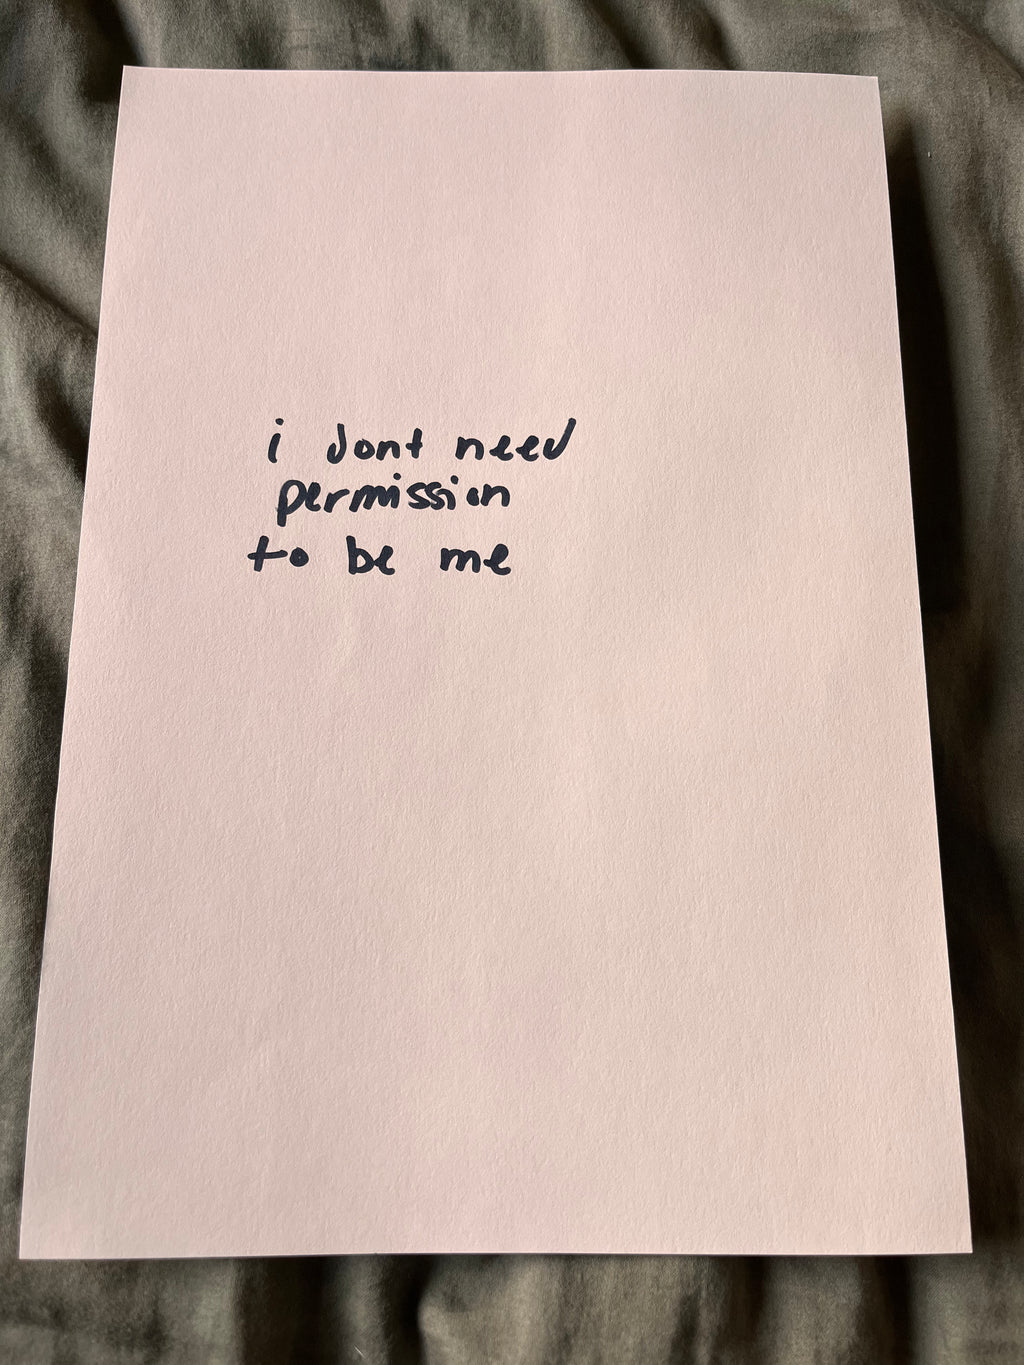 i dont need
permission
to be me